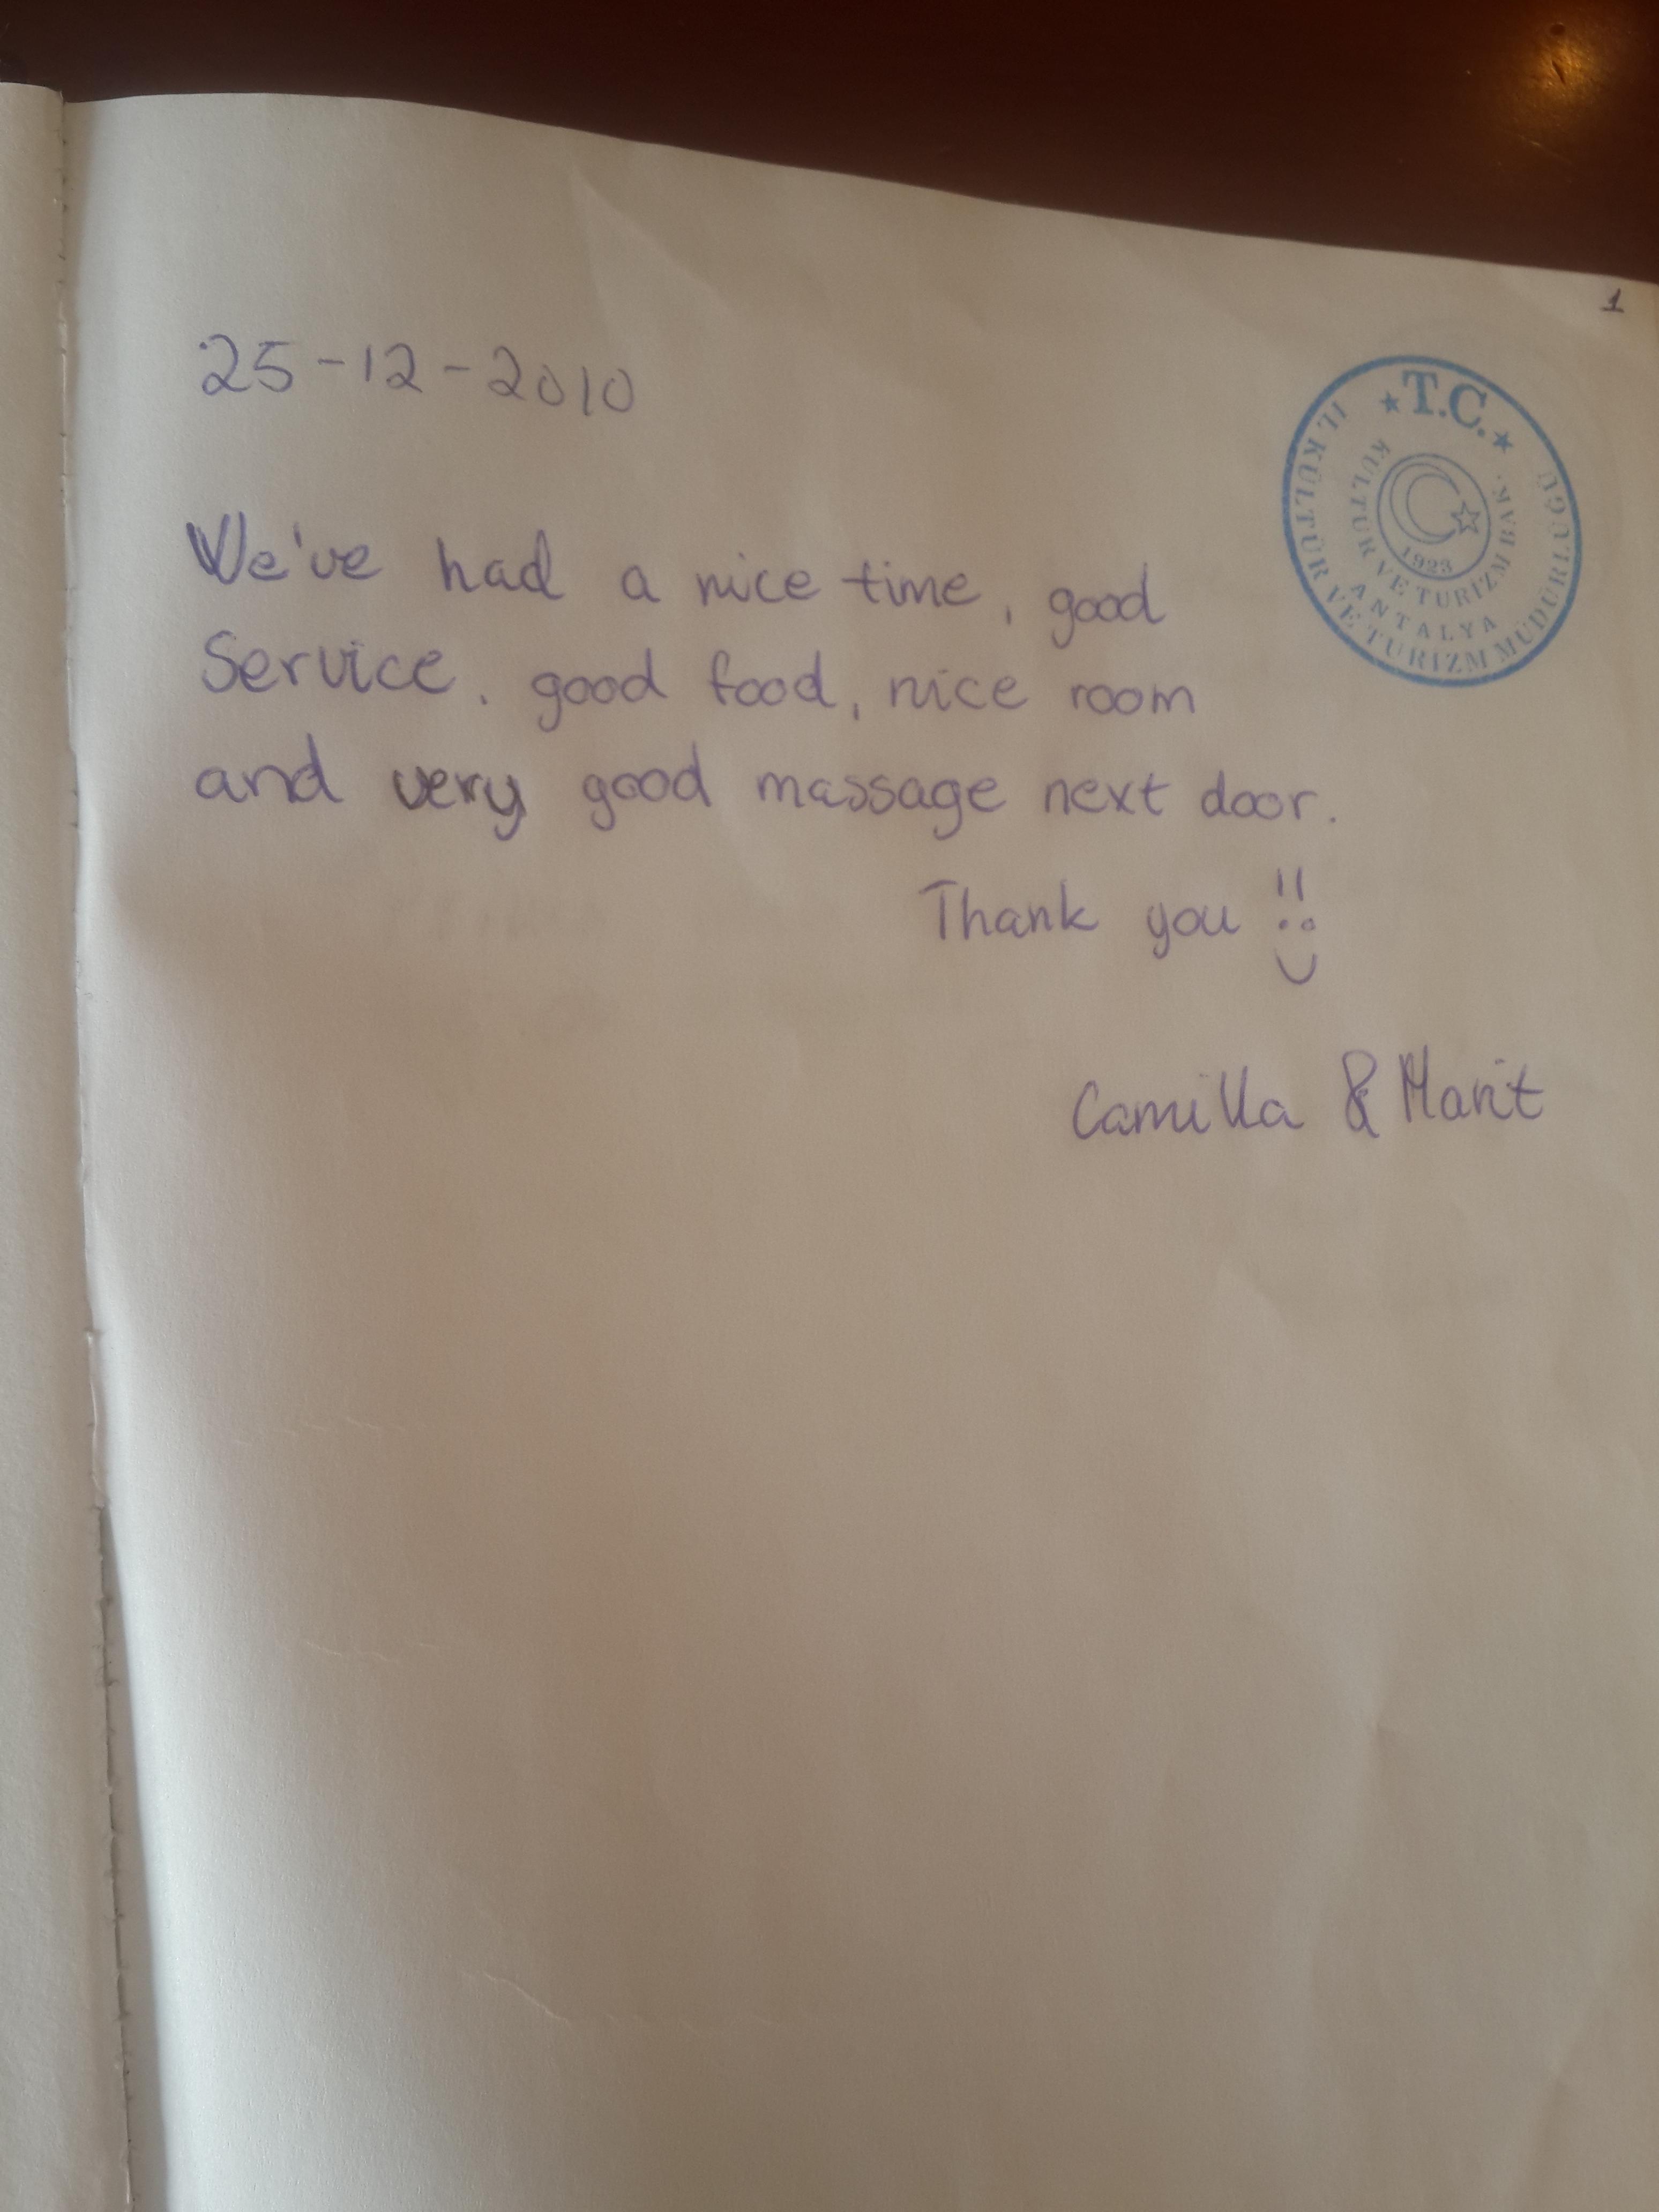 1
25-12-2010
★ T.C. ★
İL KÜLTÜR VE TURİZM MÜDÜRLÜĞÜ
KÜLTÜR VE TURİZM BAK.
ANTALYA
1923
We've had a nice time, good
Service, good food, nice room
and very good massage next door.
Thank you !! :)
Camilla & Marit